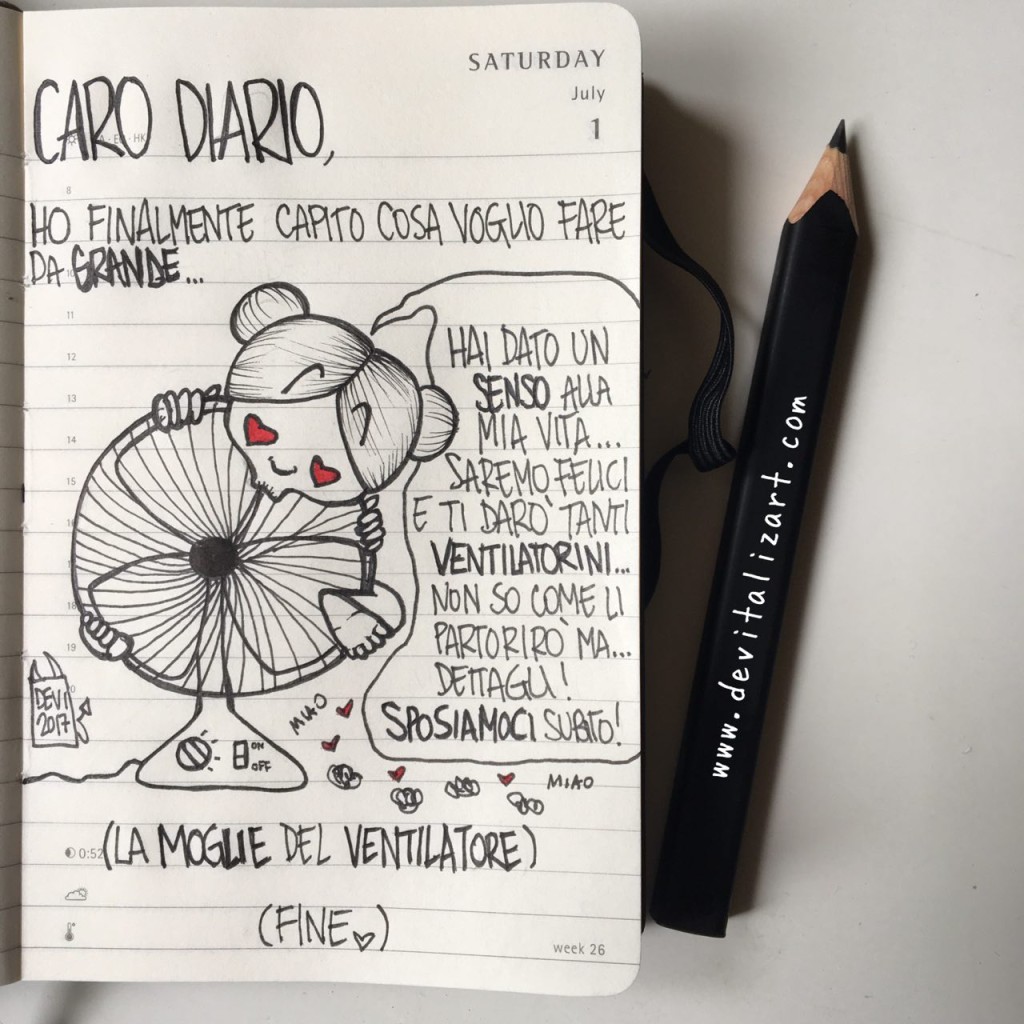 SATURDAY
July
1
CARO DIARIO,
8
HO FINALMENTE CAPITO COSA VOGLIO FARE
DA GRANDE...
11
12
13
14
15
18
19
HAI DATO UN
SENSO ALLA
MIA VITA...
SAREMO FELICI
E TI DARO' TANTI
VENTILATORINI...
NON SO COME LI
PARTORIRO' MA...
DETTAGLI!
SPOSIAMOCI SUBITO!
DEVI
2017
MIAO
ON
OFF
MIAO
0:52
(LA MOGLIE DEL VENTILATORE)
(FINE)
week 26
www.devitalizart.com